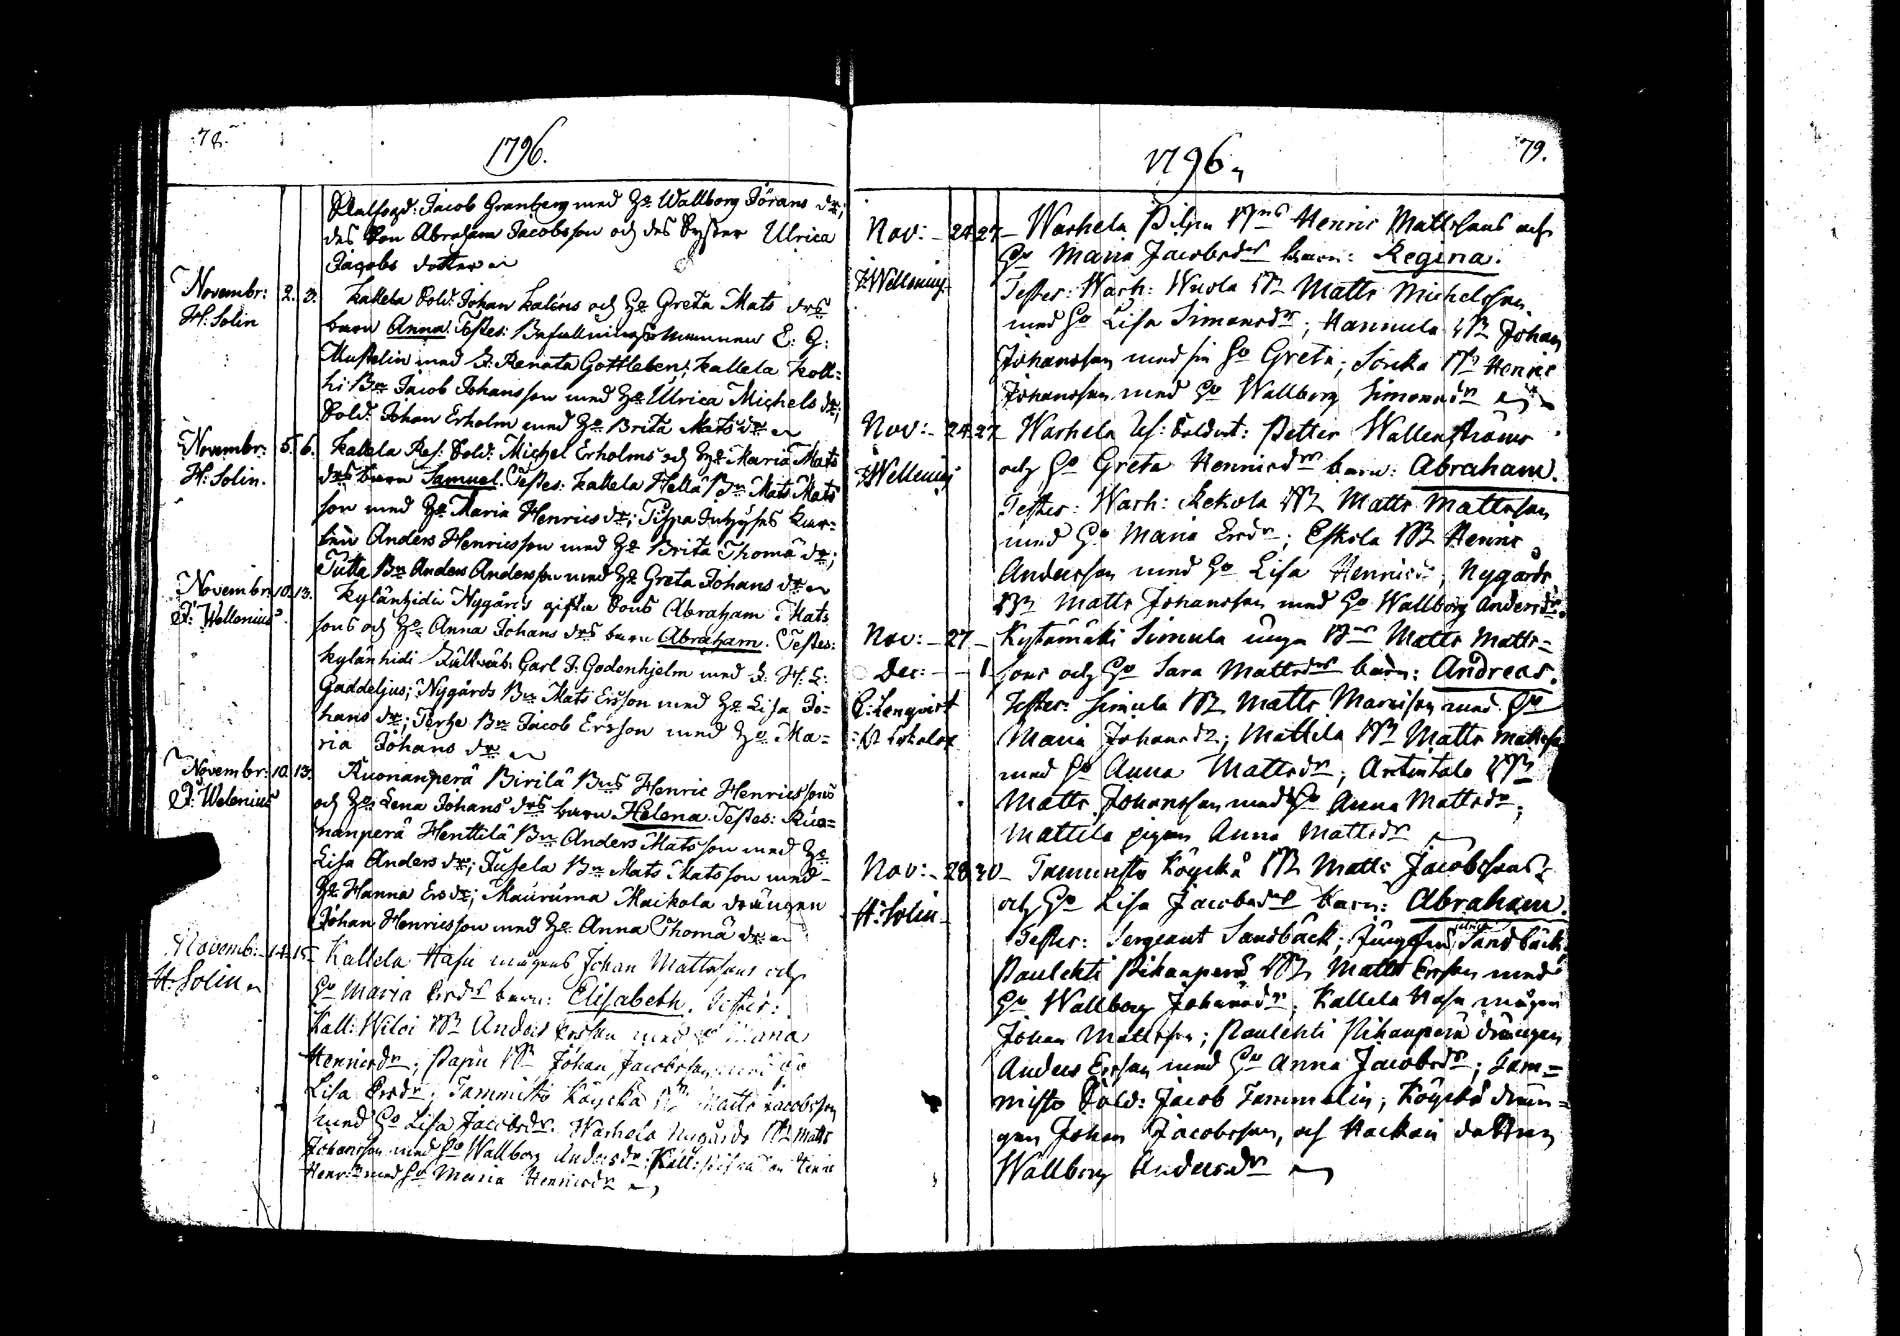 78.
1796.
Jacob Granberg med H:o Wallborg Jörans dr;
des Son Abraham Jacobsson och des Syster Ulrica
Jacobs dotter
Novembr: 2. 3. Kallela Sold: Johan Kalens och H:o Greta Mats drs
H: Solin
barn Anna. Testes: Befallningsmannen E: G:
Mustelin med J: Renata Gottleben; Kallela Koll=
hi Bn Jacob Johansson med H:o Ulrica Michels dr;
Sold: Johan Erholm med H:o Brita Mats dr
Novembr: 5. 6. Kallela Res: Sold: Michel Erholms och H:o Maria Mats
H: Solin.
drs barn Samuel. Testes: Kallela Hellä Bn Mats Mats
son med H:o Maria Henrics dr;
Anders Henricsson med H:o Brita Thomæ dr;
Tutta Bn Anders Andersson med H:o Greta Johans dr
Novembr: 10. 13. Kylänhidi Nygårds gifta Sons Abraham Mats
F: Wellenius
sons och H:o Anna Johans drs barn Abraham. Testes:
Kylänhidi Carl F. Godenhjelm med J: H: L:
Gaddeljus; Nygårds Bn Mats Ersson med H:o Lisa Jo=
hans dr; Bn Jacob Ersson med H:o Ma=
ria Johans dr
Novembr: 10. 13. Ruonanperä Birilä Bns Henric Henricssons
F: Welenius
och H:o Lena Johans drs barn Helena. Testes: Ruo=
nanperä Henttilä Bn Anders Matsson med H:o
Lisa Anders dr; Bn Mats Matsson med
H:o Hanna Ers dr; Mauruma Maikola drängen
Johan Henricsson med H:o Anna Thomæ dr
Novemb: 14. 15. Kallela Hasu mågens Johan Mattssons och
H: Solin
H:o Maria Ersdrs barn: Elisabeth. Testes:
Kall: Bn Anders Ersson med H:o Maria
Henricsdr; Papu Bn Johan Jacobsson med H:o
Lisa Ersdr; Tammisto Köyckä Bn Matts Jacobsson
med H:o Lisa Jacobsdr. Warhela Nygårds Bn Matts
Johansson med H:o Wallborg Andersdr; Kall:
med H:o Maria Henricsdr
1796.
79.
Nov: 24. 27. Warhela Pilpu Bns Henric Mattssons och
H:o Maria Jacobsdrs barn: Regina.
F: Wellenius
Testes: Warh: Bn Matts Michelsson
med H:o Lisa Simonsdr; Hannula Bn Johan
Johansson med sin H:o Greta; Bn Henric
Johansson med H:o Wallborg Simonsdr
Nov: 24. 27. Warhela Petter Wallenströms
och H:o Greta Henricsdrs barn: Abraham.
F: Wellenius
Testes: Warh: Rekola Bn Matts Mattsson
med H:o Maria Ersdr; Eskola Bn Henric
Andersson med H:o Lisa Henricsdr; Nygårds
Bn Matts Johansson med H:o Wallborg Andersdr.
Nov: 27. Kystämäki Simula unga Bns Matts Matts=
Dec: 1 sons och H:o Sara Mattsdrs barn: Andreas.
E: Lenqvist
Testes: Simula Bn Matts med H:o
Maria Johansdr; Mattila Bn Matts Mattsson
med H:o Anna Mattsdr; Antintalo Bn
Matts Johansson med H:o Anna Mattsdr;
Mattila pigan Anna Mattsdr
Nov: 28. 30. Tammisto Köyckä Bn Matts Jacobssons
och H:o Lisa Jacobsdrs barn: Abraham.
H: Solin
Testes: Sergeant Sandbäck; Jungfru Sandbäck;
Paulehti Pihanperä Bn Matts Ersson med
H:o Wallborg Johansdr; Kallela Hasu mågen
Johan Mattsson; Paulehti Pihanperä drängen
Anders Ersson med H:o Anna Jacobsdr; Tam=
misto Sold: Jacob Tammelin; Köyckä drän=
gen Johan Jacobsson, och Hackari dottren
Wallborg Andersdr